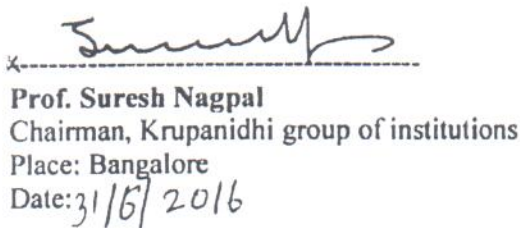 Prof. Suresh Nagpal
Chairman, Krupanidhi group of institutions
Place: Bangalore
Date: 31/5/2016